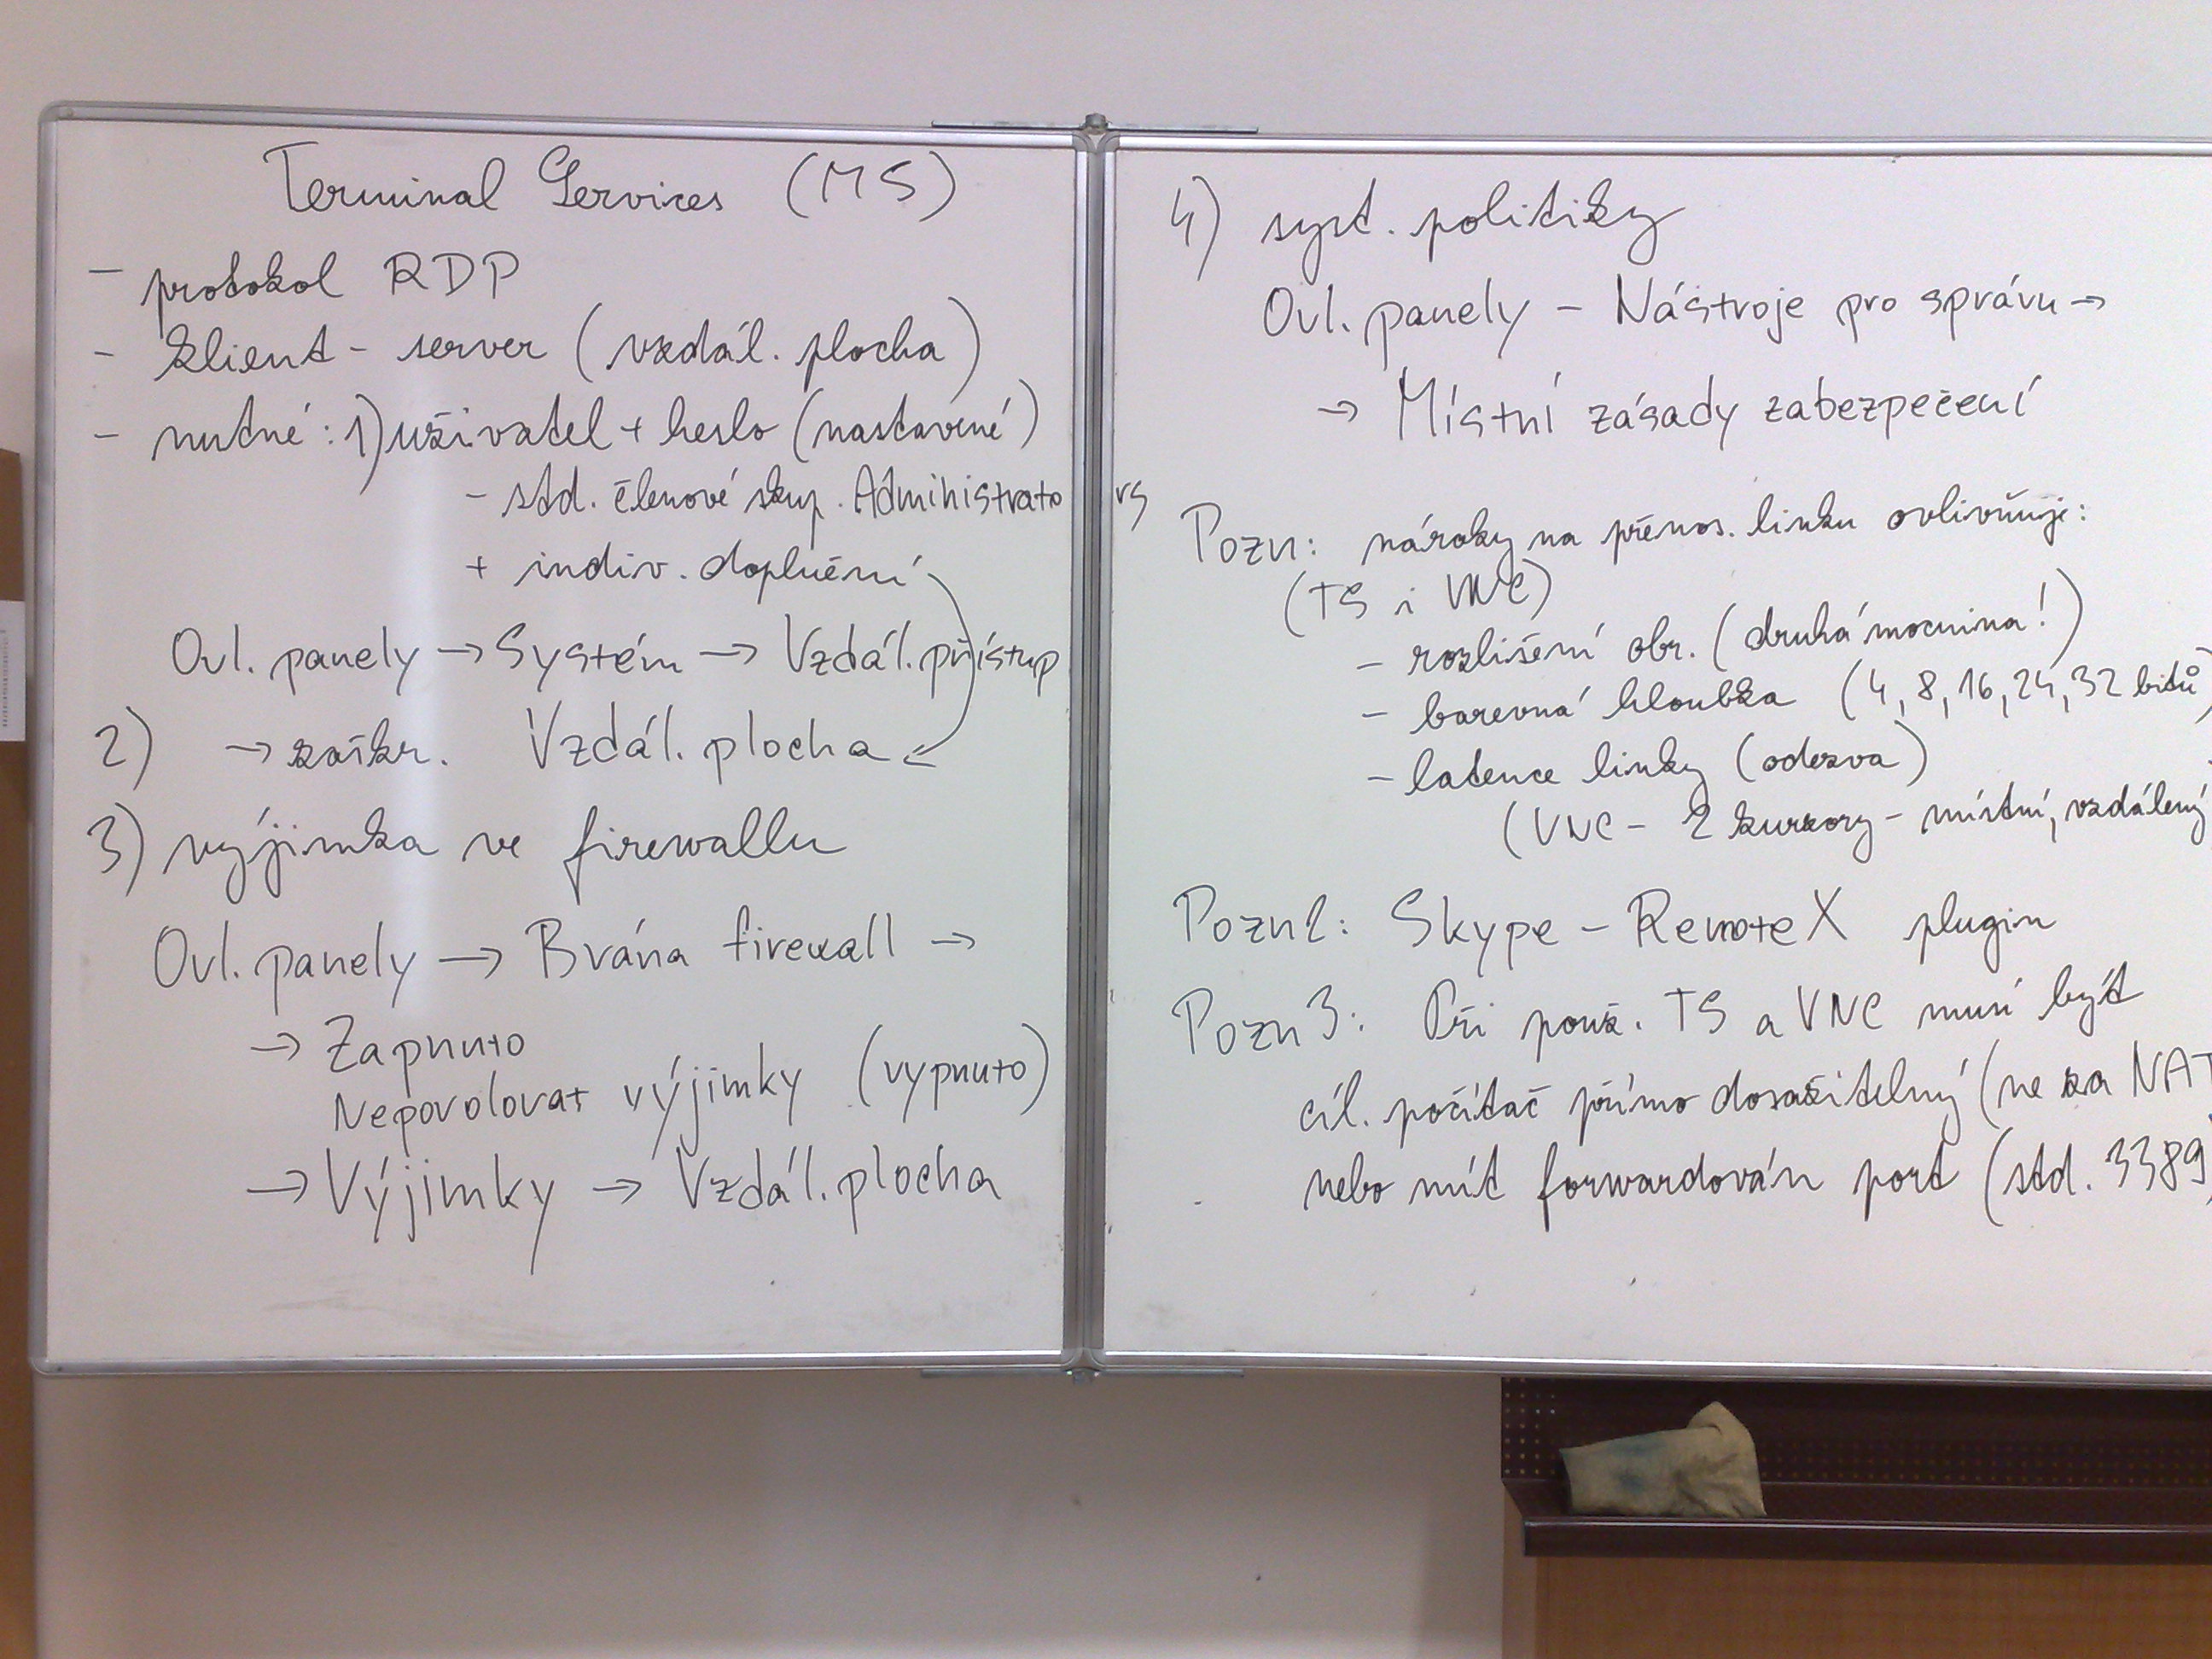 Terminal Services (MS)
- protokol RDP
- klient - server (vzdál. plocha)
- nutné: 1) uživatel + heslo (nastavené)
- std. členové skup. Administrators
+ indiv. doplnění
Ovl. panely → Systém → Vzdál. přístup
2) → zaškr. Vzdál. plocha
3) výjimka ve firewallu
Ovl. panely → Brána firewall →
→ Zapnuto
Nepovolovat výjimky (vypnuto)
→ Výjimky → Vzdál. plocha
4) syst. politiky
Ovl. panely - Nástroje pro správu →
→ Místní zásady zabezpečení
Pozn: nároky na přenos. linku ovlivňuje:
(TS i VNC)
- rozlišení obr. (druhá mocnina!)
- barevná hloubka (4, 8, 16, 24, 32 bitů)
- latence linky (odezva)
(VNC - 2 kurzory - místní, vzdálený
Pozn2: Skype - RemoteX plugin
Pozn3: Při použ. TS a VNC musí být
cíl. počítač přímo dosažitelný (ne za NAT
nebo mít forwardován port (std. 3389)